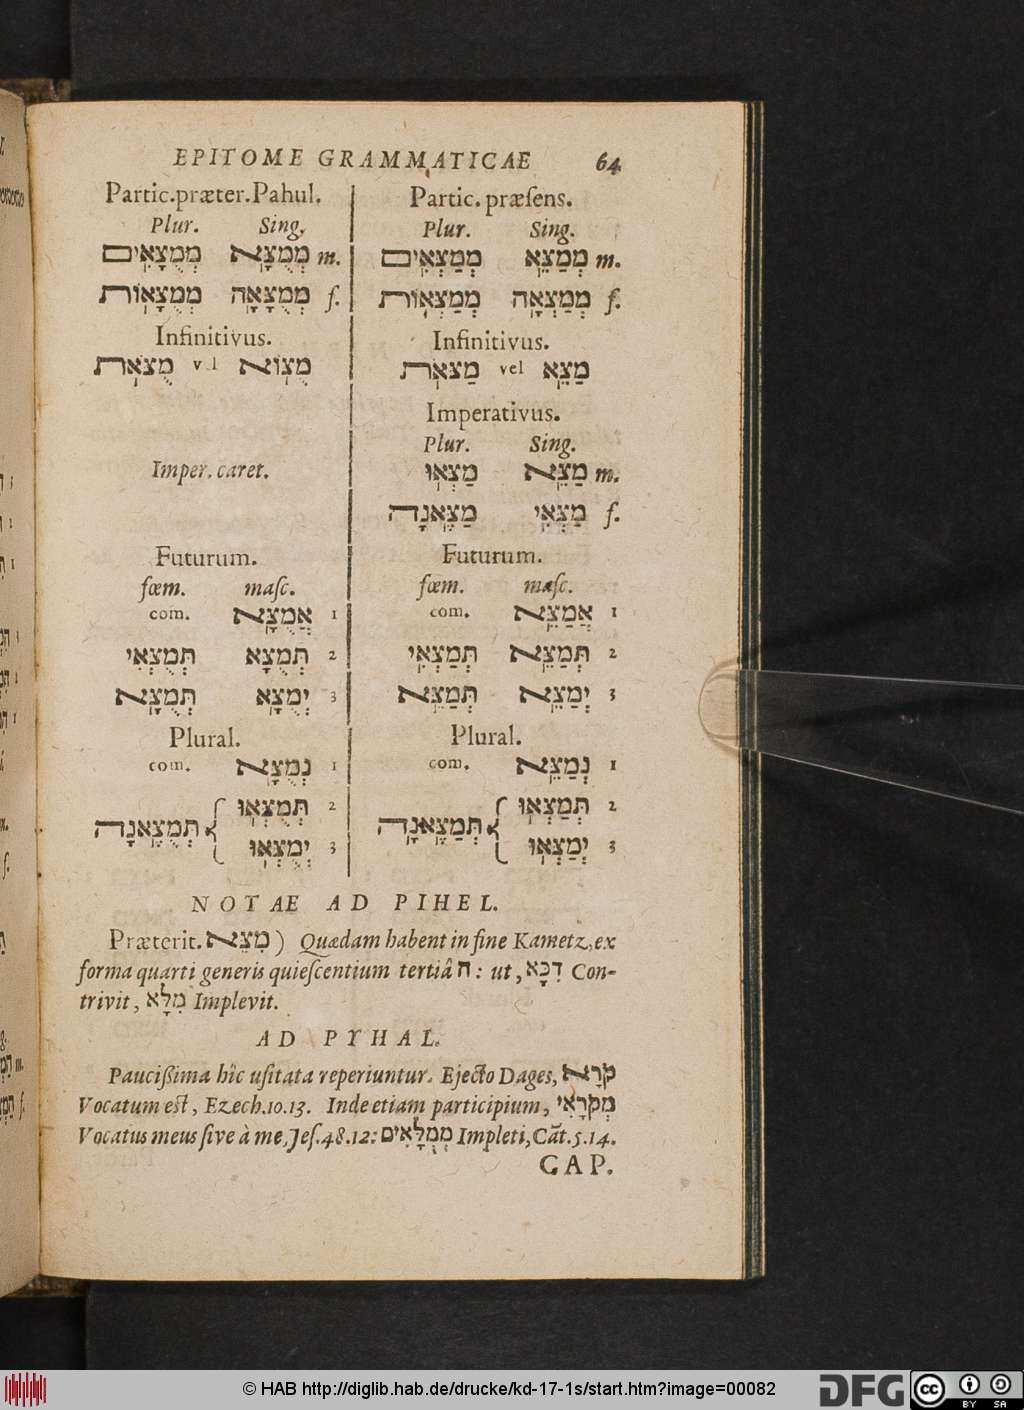 EPITOME GRAMMATICAE 64
Partic. præter. Pahul.
Plur. Sing.
מְמֻצָּאִים מְמֻצָּא m.
מְמֻצָּאוֹת מְמֻצָּאָה f.
Infinitivus.
מֻצֹּאת v l מֻצּוֹא
Imper. caret.
Futurum.
fœm. maſc.
com. אֲמֻצָּא 1
תְּמֻצְּאִי תְּמֻצָּא 2
תְּמֻצָּא יְמֻצָּא 3
Plural.
com. נְמֻצָּא 1
תְּמֻצֶּאנָה { תְּמֻצְּאוּ 2
יְמֻצְּאוּ 3
Partic. præſens.
Plur. Sing.
מְמַצְּאִים מְמַצֵּא m.
מְמַצְּאוֹת מְמַצְּאָה f.
Infinitivus.
מַצֹּאת vel מַצֵּא
Imperativus.
Plur. Sing.
מַצְּאוּ מַצֵּא m.
מַצֶּאנָה מַצְּאִי f.
Futurum.
fœm. maſc.
com. אֲמַצֵּא 1
תְּמַצְּאִי תְּמַצֵּא 2
תְּמַצֵּא יְמַצֵּא 3
Plural.
com. נְמַצֵּא 1
תְּמַצֶּאנָה { תְּמַצְּאוּ 2
יְמַצְּאוּ 3
NOTAE AD PIHEL.
Præterit. מִצֵּא ) Quædam habent in fine Kametz, ex
forma quarti generis quieſcentium tertiâ ה : ut, דִּכָּא Con-
trivit, מִלָּא Implevit.
AD PYHAL.
Pauciſſima hîc uſitata reperiuntur. Ejecto Dages, קֹרָא
Vocatum eſt, Ezech. 10. 13. Inde etiam participium, מְקֹרָאִי
Vocatus meus ſive à me, Jeſ. 48. 12: מְמֻלָּאִים Impleti, Cāt. 5. 14.
CAP.
© HAB http://diglib.hab.de/drucke/kd-17-1s/start.htm?image=00082
DFG
cc BY SA